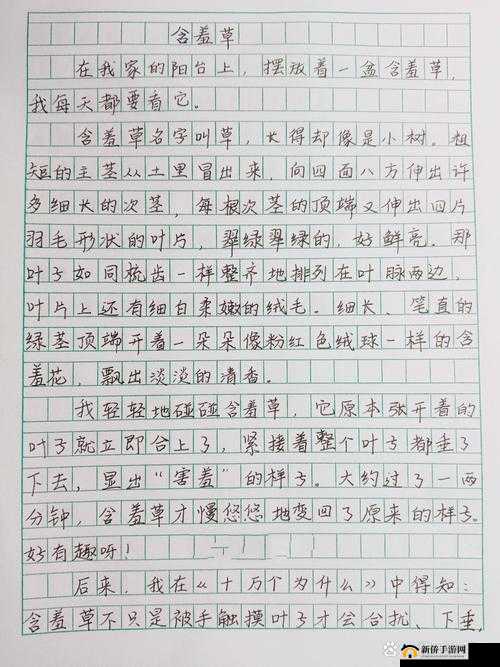 含羞草
在我家的阳台上，摆放着一盆含羞草，
我每天都要看它。
含羞草名字叫草，长得却像是小树。粗
短的主茎从土里冒出来，向四面八方伸出许
多细长的次茎，每根次茎的顶端又伸出四片
羽毛形状的叶片，翠绿翠绿的，好鲜亮。那
叶子如同梳齿一样整齐地排列在叶脉两边，
叶片上还有细白柔嫩的绒毛。细长、笔直的
绿茎顶端开着一朵朵像粉红色绒球一样的含
羞花，飘出淡淡的清香。
我轻轻地碰碰含羞草，它原本张开着的
叶子就立即合上了，紧接着整个叶子都垂了
下去，显出“害羞”的样子。大约过了一两
分钟，含羞草才慢悠悠地变回了原来的样子。
好有趣呀！
后来，我在《十万个为什么》中得知：
含羞草不只是被手触摸叶子才会合拢、下垂，
新侨手游网